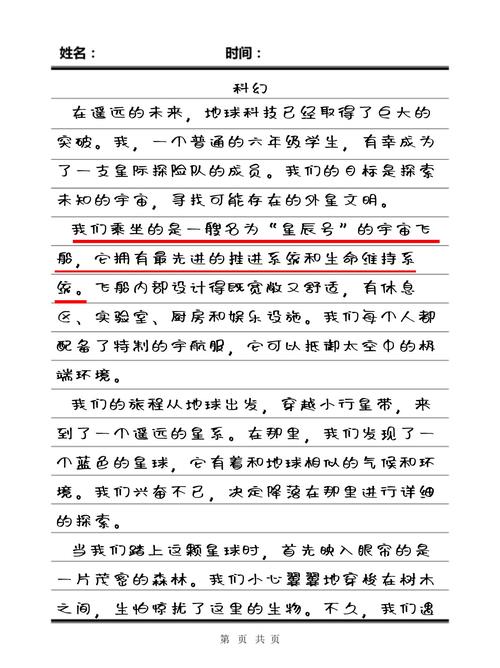 姓名： 时间：
科幻
在遥远的未来，地球科技已经取得了巨大的
突破。我，一个普通的六年级学生，有幸成为
了一支星际探险队的成员。我们的目标是探索
未知的宇宙，寻找可能存在的外星文明。
我们乘坐的是一艘名为“星辰号”的宇宙飞
船，它拥有最先进的推进系统和生命维持系
统。飞船内部设计得既宽敞又舒适，有休息
区、实验室、厨房和娱乐设施。我们每个人都
配备了特制的宇航服，它可以抵御太空中的极
端环境。
我们的旅程从地球出发，穿越小行星带，来
到了一个遥远的星系。在那里，我们发现了一
个蓝色的星球，它有着和地球相似的气候和环
境。我们兴奋不已，决定降落在那里进行详细
的探索。
当我们踏上这颗星球时，首先映入眼帘的是
一片茂密的森林。我们小心翼翼地穿梭在树木
之间，生怕惊扰了这里的生物。不久，我们遇
第 页 共 页